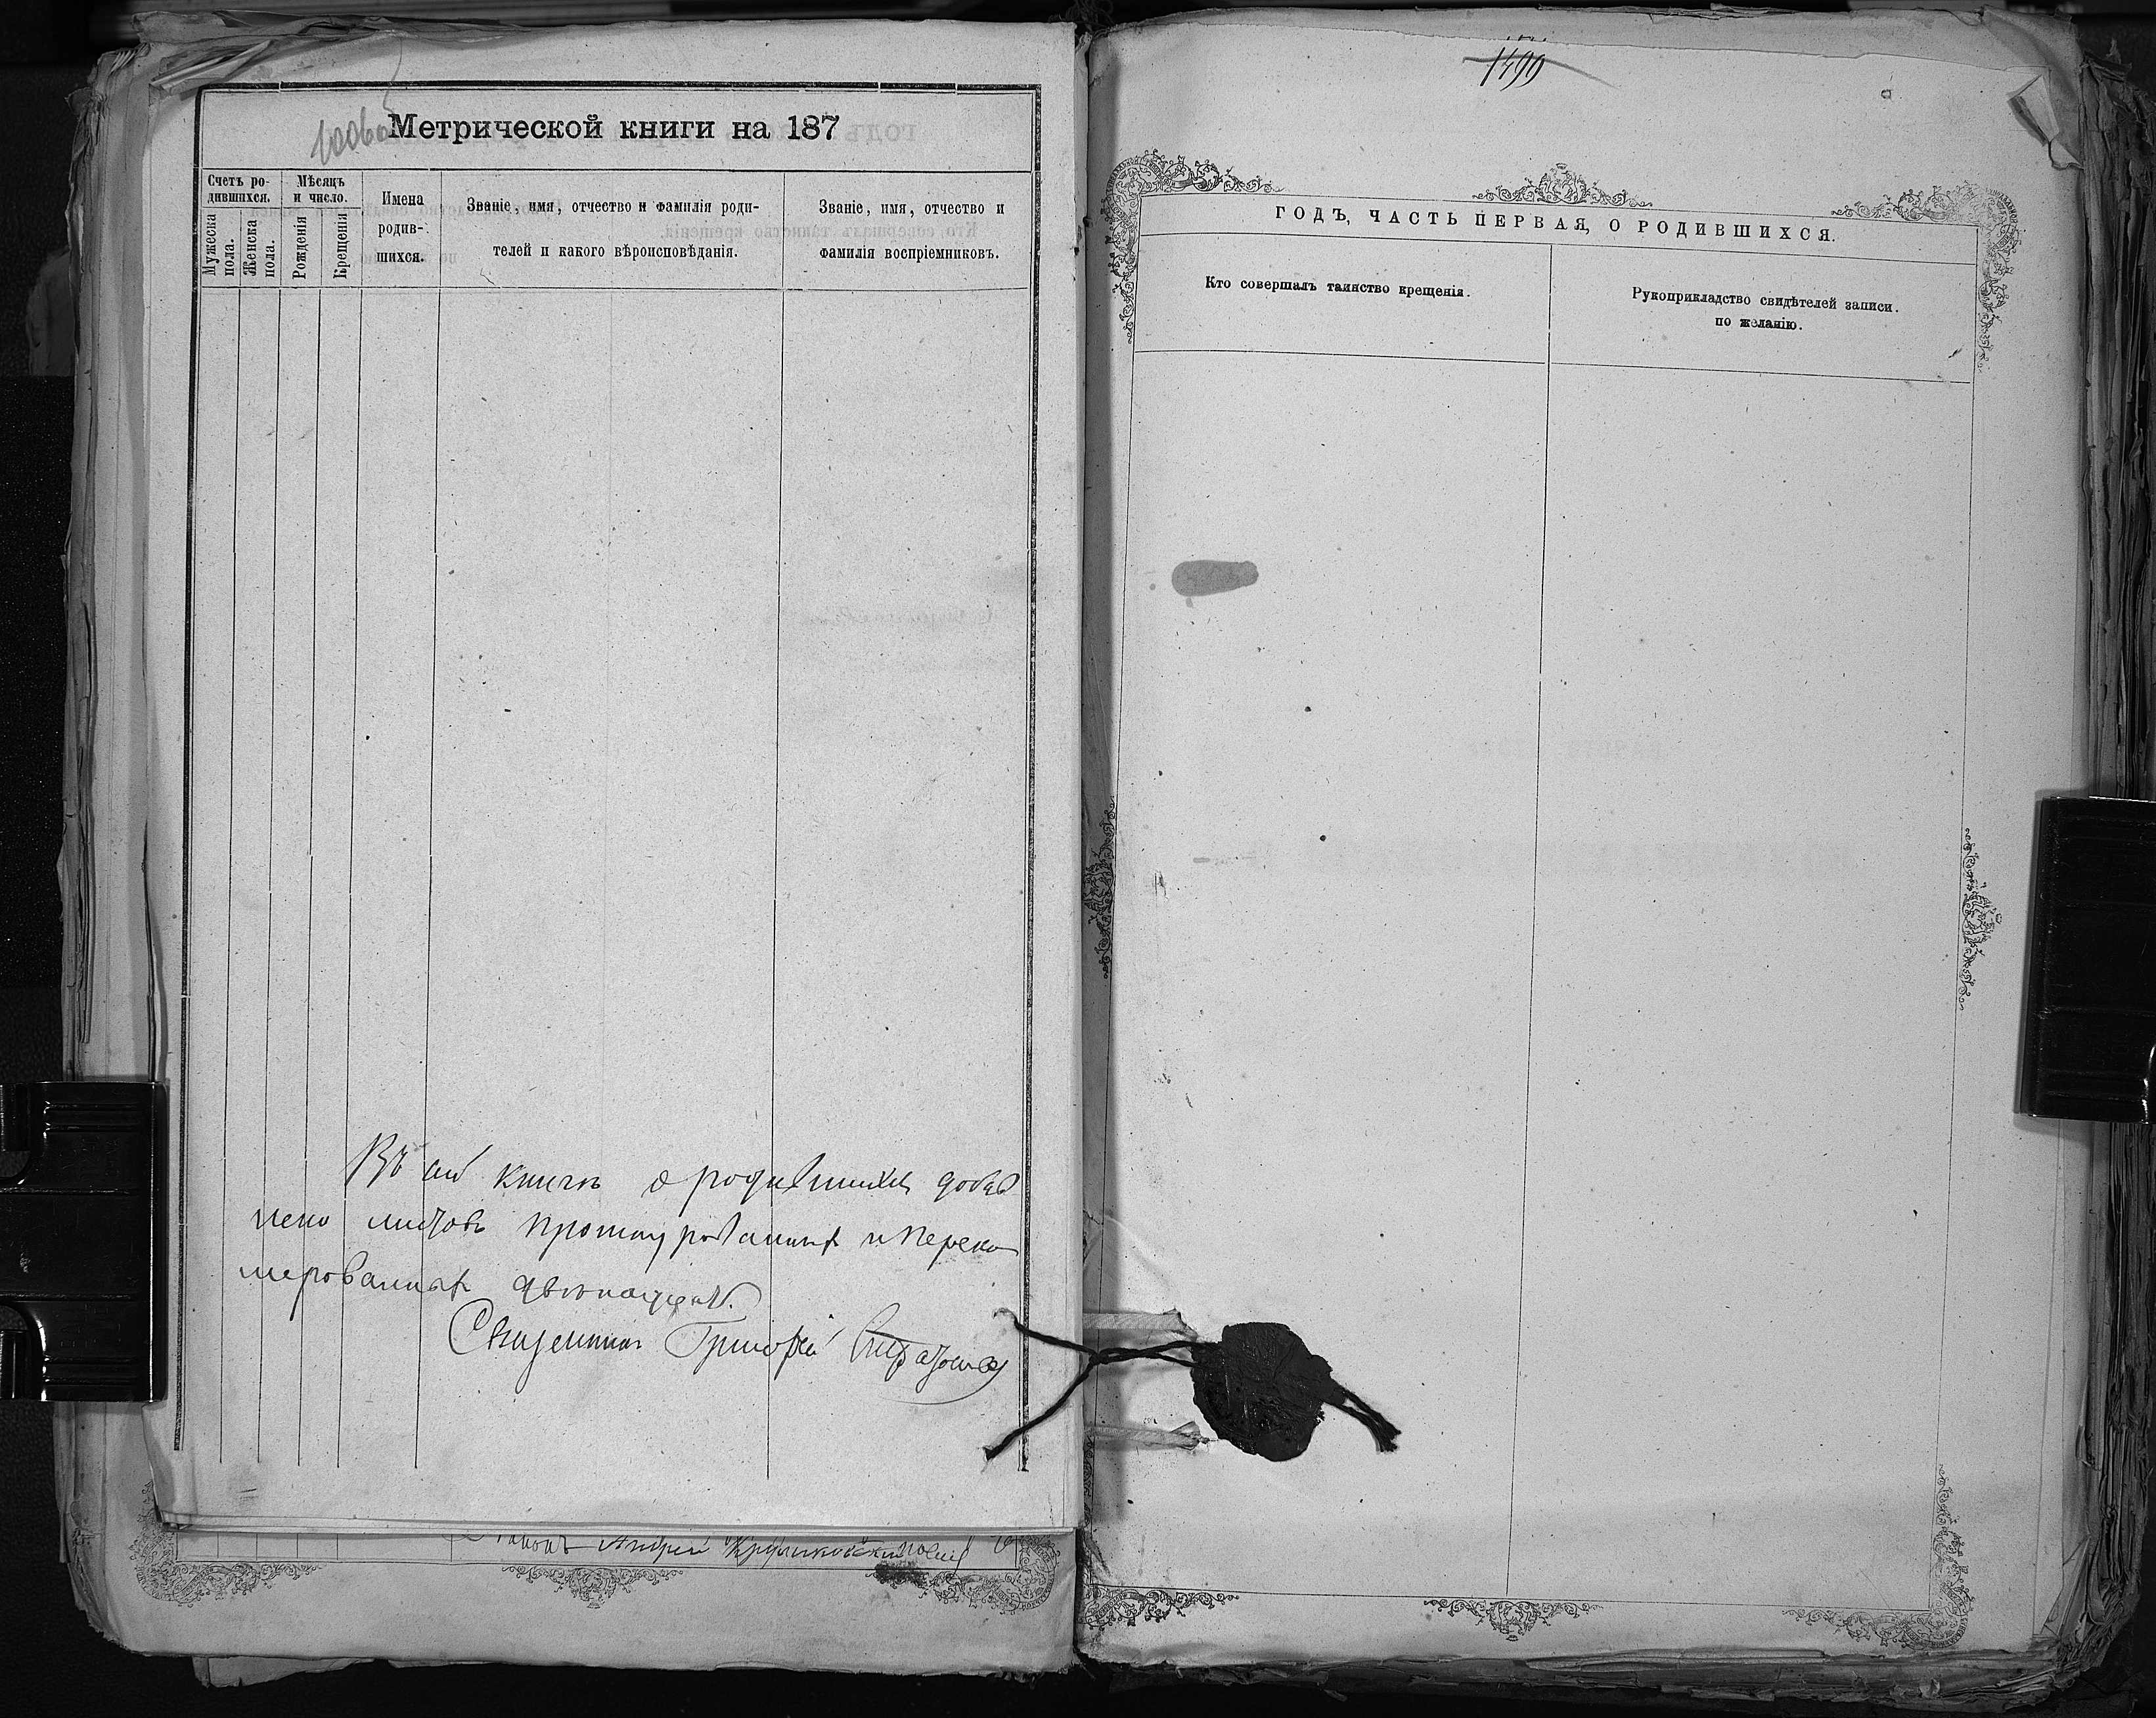 Метрической книги на 187
Счетъ ро-
дившихся.
Мужеска
пола.
Женска
пола.
Мѣсяцъ
и число.
Рожденія
Крещенія
Имена
родив-
шихся.
Званіе, имя, отчество и фамилія роди-
телей и какого вѣроисповѣданія.
Званіе, имя, отчество и
фамилія воспріемниковъ.
Въ сей книгѣ о родившихся добав
лено листовъ прошнурованныхъ и перену
мерованныхъ двѣнадцать.
Священникъ Григорій
Андрей
1499
ГОДЪ, ЧАСТЬ ПЕРВАЯ, О РОДИВШИХСЯ.
Кто совершалъ таинство крещенія.
Рукоприкладство свидѣтелей записи.
по желанію.